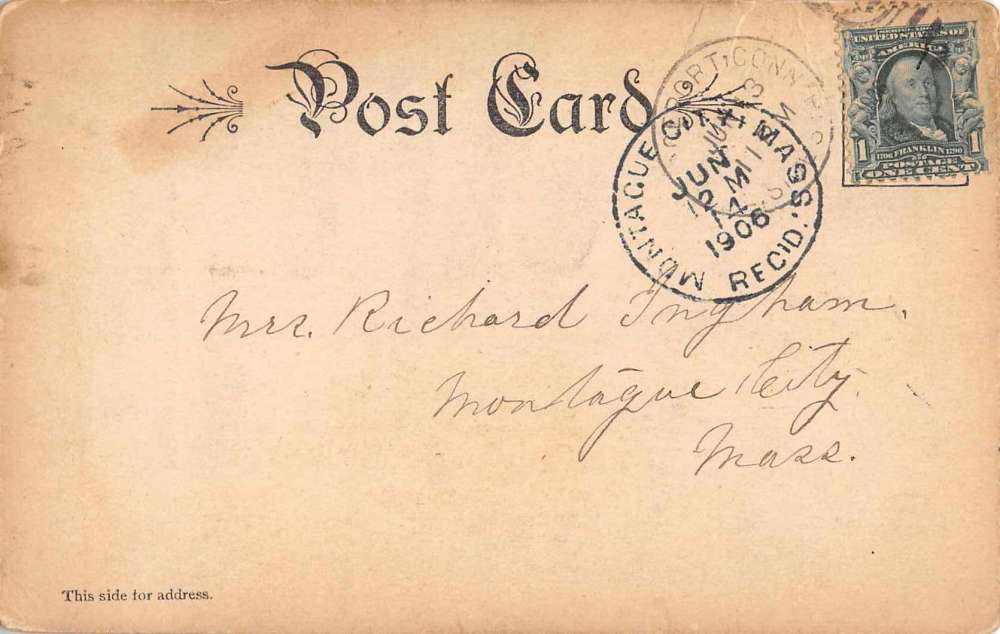 Post Card
SERIES 1902
UNITED STATES OF
AMERICA
1 1706 FRANKLIN 1790 1
POSTAGE
ONE CENT
PORT, CONN
MONTAGUE CITY, MASS.
JUN
12 M
1906
REC'D.
Mrs. Richard Ingham,
Montague City.
Mass.
This side for address.